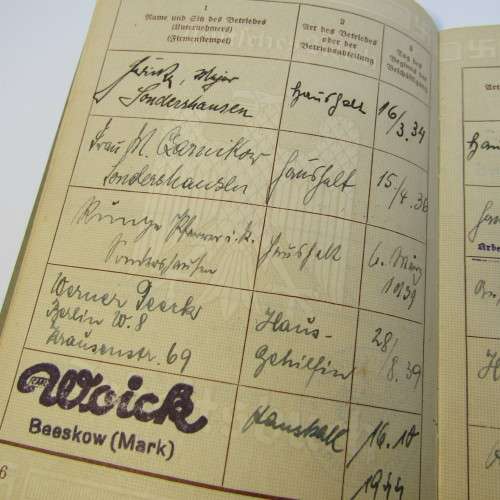 1
Name und Sitz des Betriebes
(Unternehmers)
(Firmenstempel)
2
Art des Betriebes
oder der
Betriebsabteilung
3
Tag des
Beginns der
Beschäftigung
Sondershausen
Haushalt
16/3.34
Frau M. Czarnikow
Sondershausen
Haushalt
15/4.36
Runge Pfarrer i.R.
Sondershausen
Haushalt
6. März
1939
Werner
Berlin W.8
Krausenstr. 69
Haus-
Gehilfin
28/8.39
Woick
Beeskow (Mark)
Haushalt
16.10
1944
6